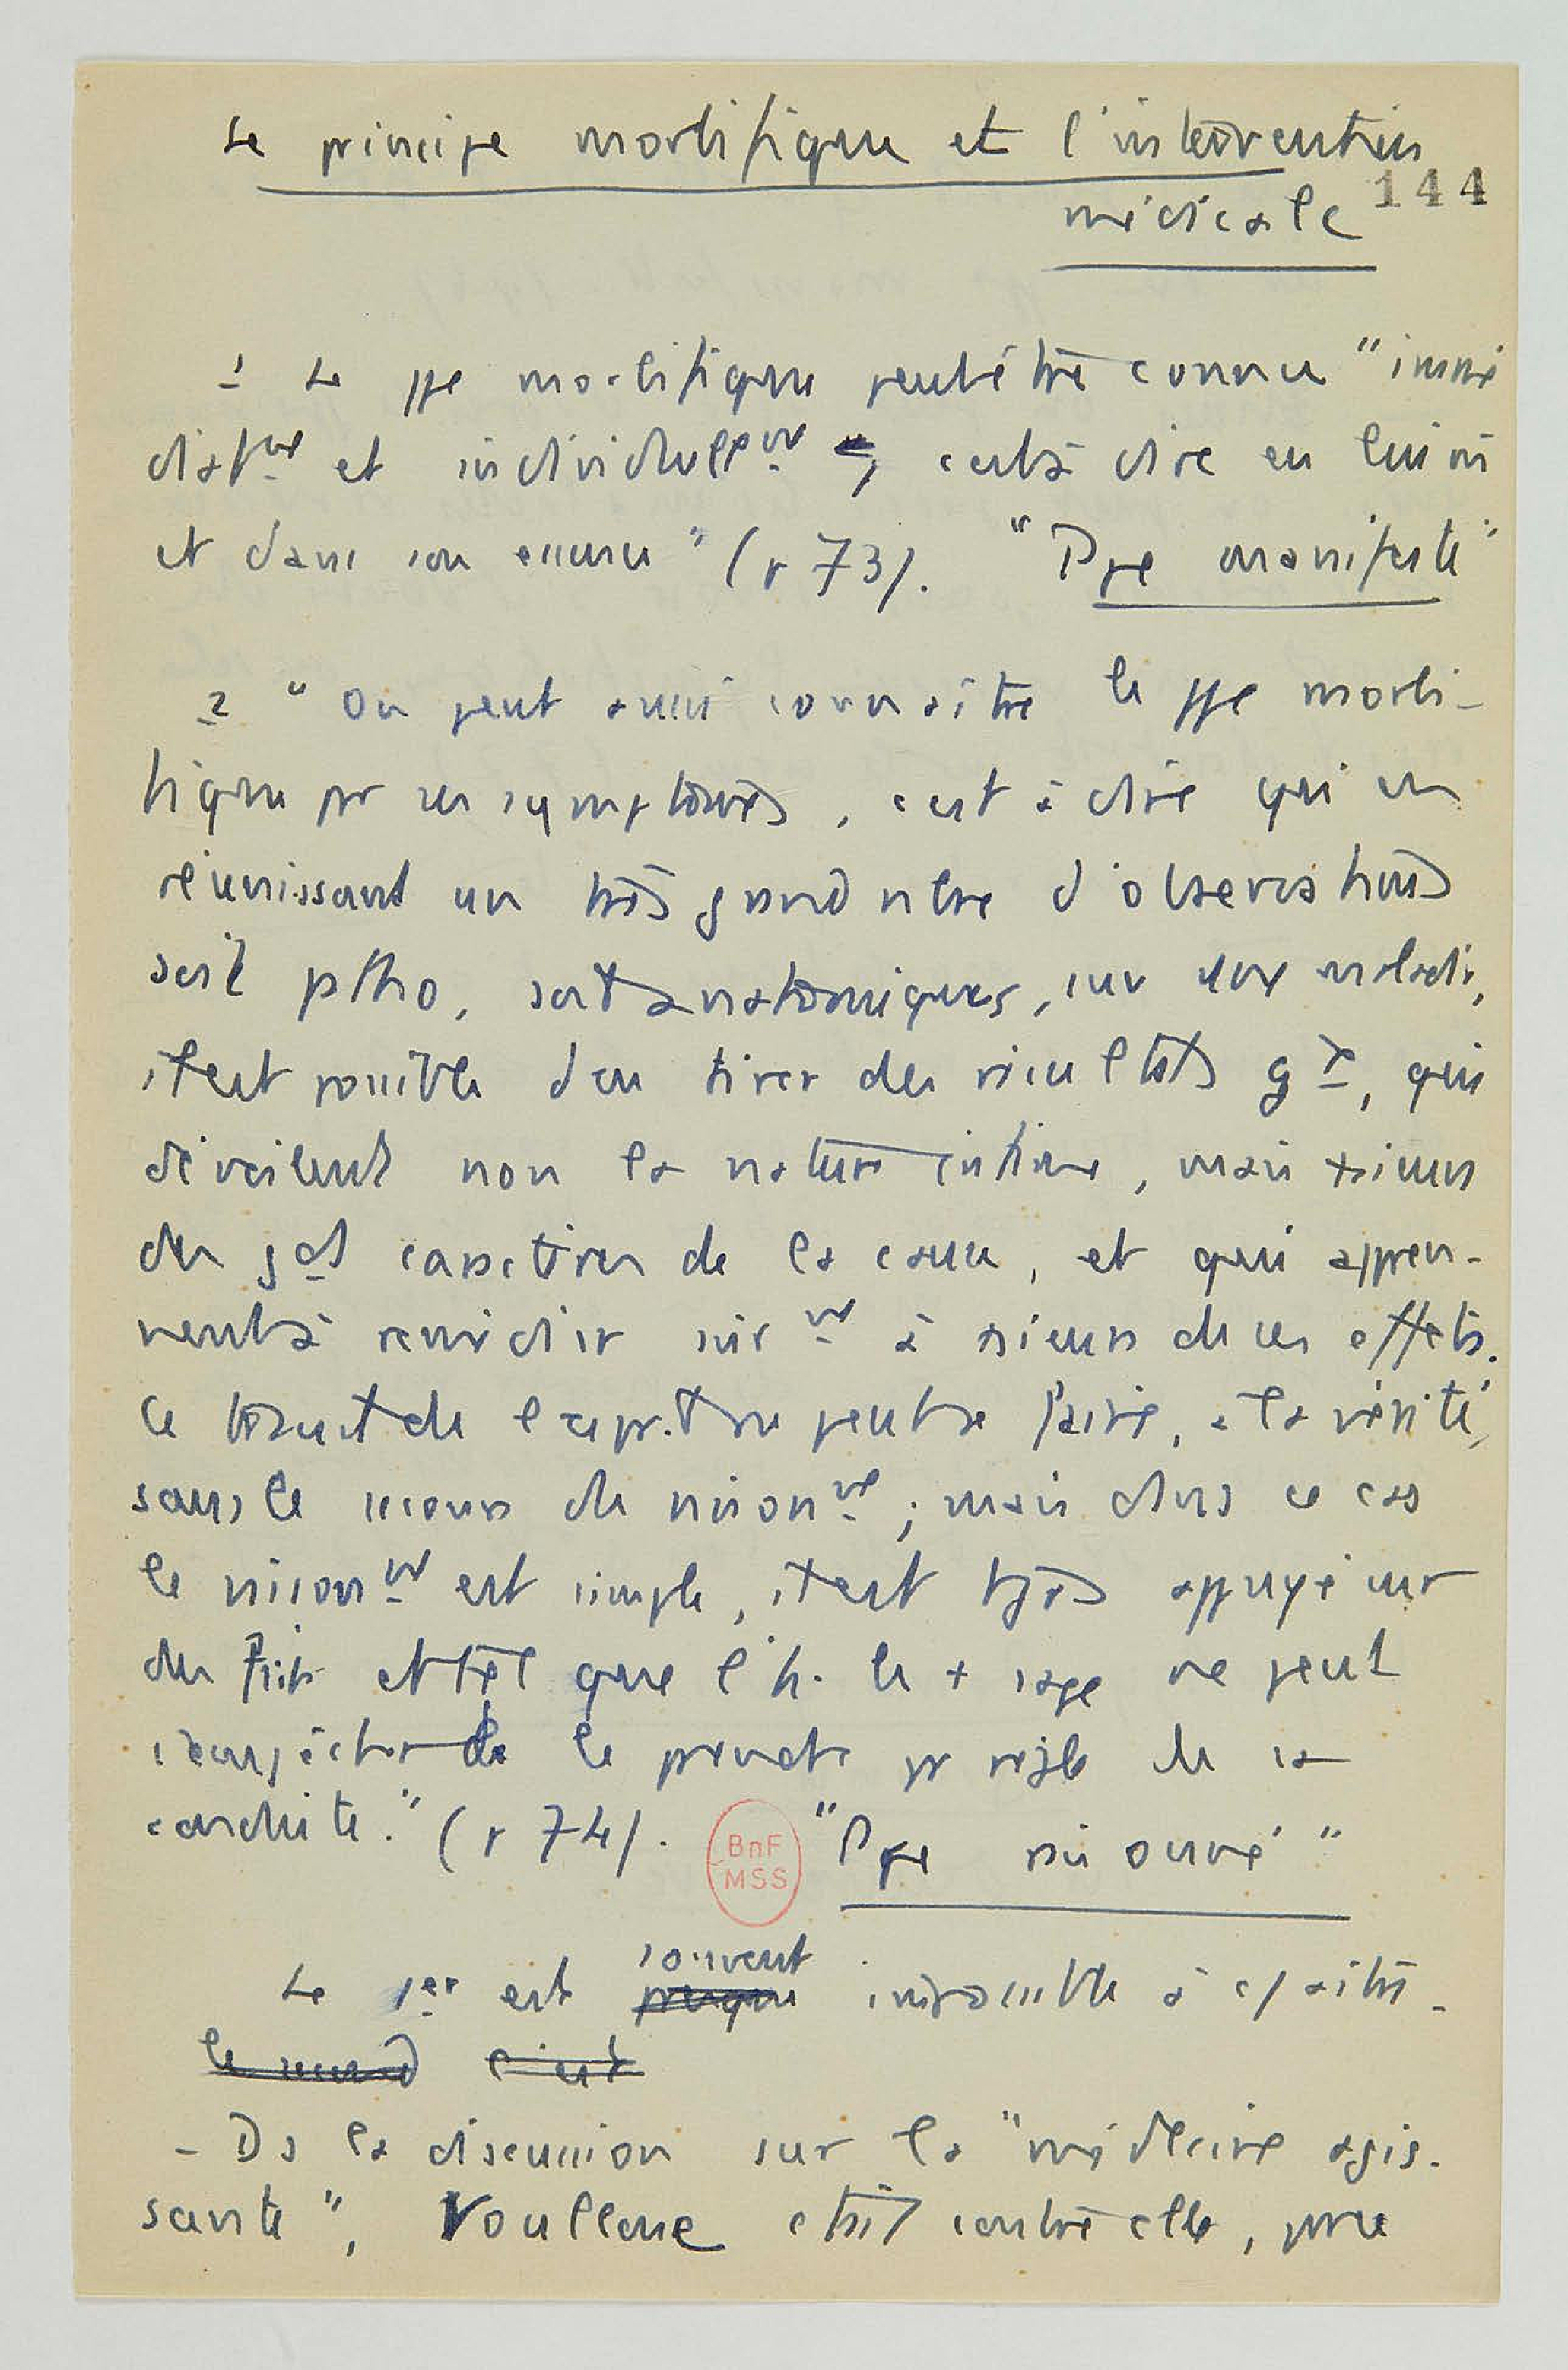 Le principe morbifique et l'intervention
144
médicale
1 Le ppe morbifique peut être connu "immé
diatmt et individuellemt, c'est à dire en lui m̂
et dans son essence" (p 73). "Ppe manifeste"
2 "On peut aussi connaître le ppe morbi-
fique par ses symptômes, c'est à dire qu'en
réunissant un très grand nbre d'observations
soit patho, soit anatomiques, sur une maladie,
il est possible d'en tirer des résultats gx, qui
dévoilent non la nature intime, mais +sieurs
des gds caractères de la cause, et qui appren-
nent à remédier sûrmt à +sieurs de ces effets.
Ce travail de l'esprit ne peut se faire, à la vérité,
sans le secours du raisonmt ; mais dans ce cas
le raisonmt est simple, il est tjrs appuyé sur
des faits et tel que l'h. le + sage ne peut
s'empêcher de le prendre pr règle de sa
conduite." (p 74). "Ppe raisonné"
BnF
MSS
souvent
Le 1er est presque impossible à c/aître.
le second c'est
- Ds la discussion sur la "médecine agis-
sante", Voullonne était contre elle, pque